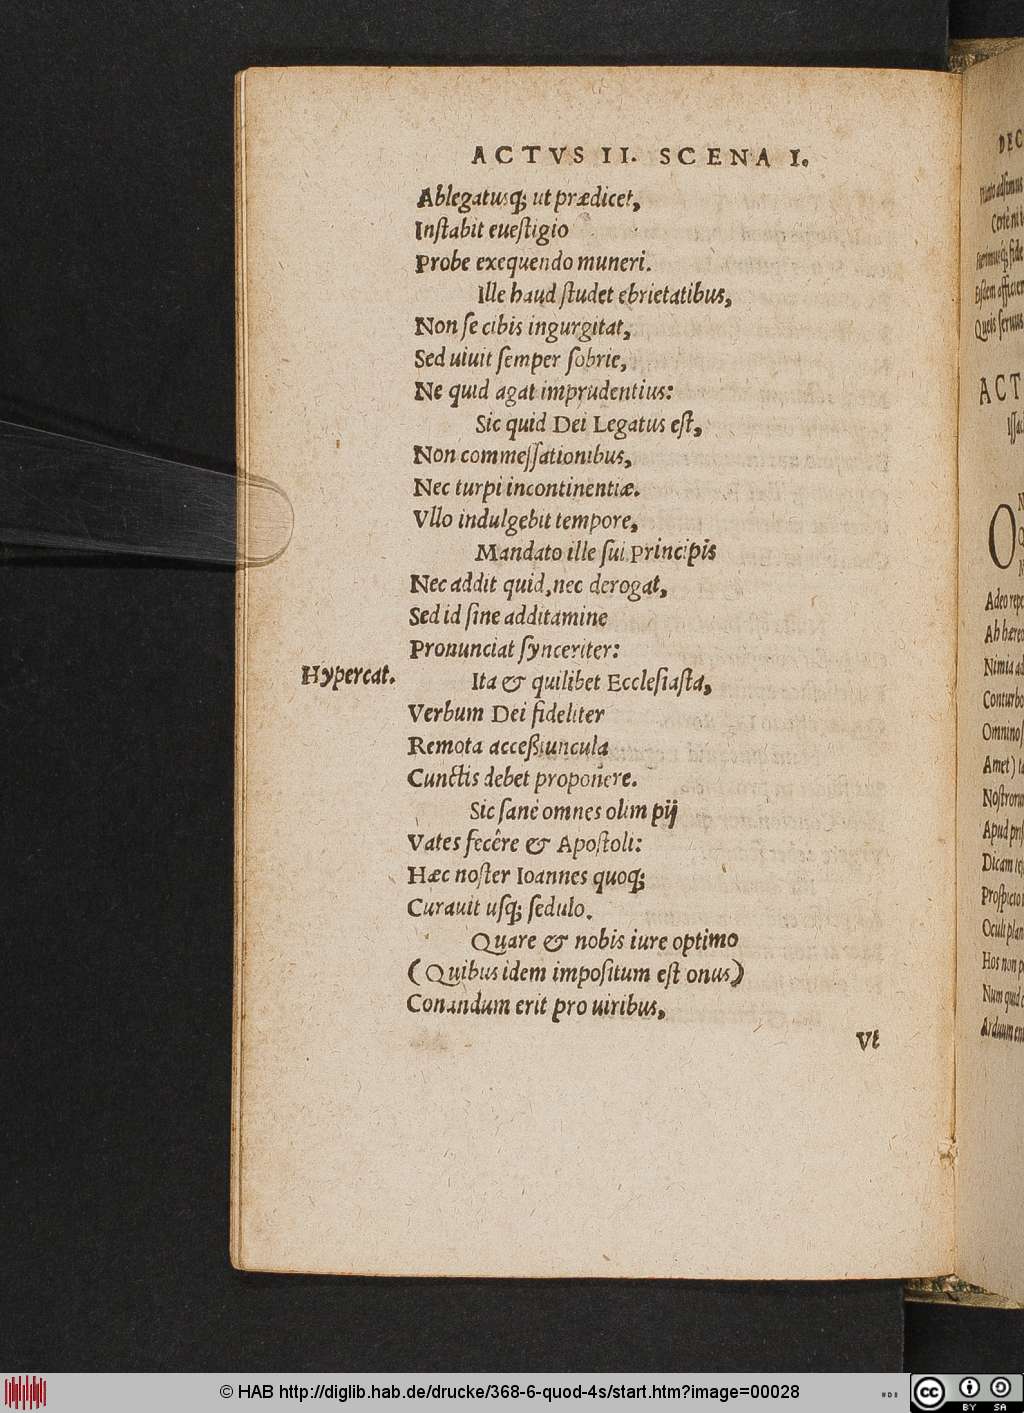 ACTVS II. SCENA I.
Ablegatusq; ut prædicet,
Inſtabit eueſtigio
Probe exequendo muneri.
Ille haud ſtudet ebrietatibus,
Non ſe cibis ingurgitat,
Sed uiuit ſemper ſobrie,
Ne quid agat imprudentius:
Sic quid Dei Legatus eſt,
Non commeſſationibus,
Nec turpi incontinentiæ.
Vllo indulgebit tempore,
Mandato ille ſui Principis
Nec addit quid, nec derogat,
Sed id ſine additamine
Pronunciat ſynceriter:
Hypercat.
Ita & quilibet Eccleſiaſta,
Verbum Dei fideliter
Remota acceßiuncula
Cunctis debet proponere.
Sic ſanè omnes olim pij
Vates fecêre & Apoſtoli:
Hæc noſter Ioannes quoq;
Curauit uſq; ſedulo.
Quare & nobis iure optimo
(Quibus idem impoſitum eſt onus)
Conandum erit pro uiribus,
Vt
DEC
ACT
Adeo repe
Nimia ad
Conturbo
Amet)
Dicam
Proſpicto
Oculi plan
Hos non p
Num quid
© HAB http://diglib.hab.de/drucke/368-6-quod-4s/start.htm?image=00028
cc BY SA